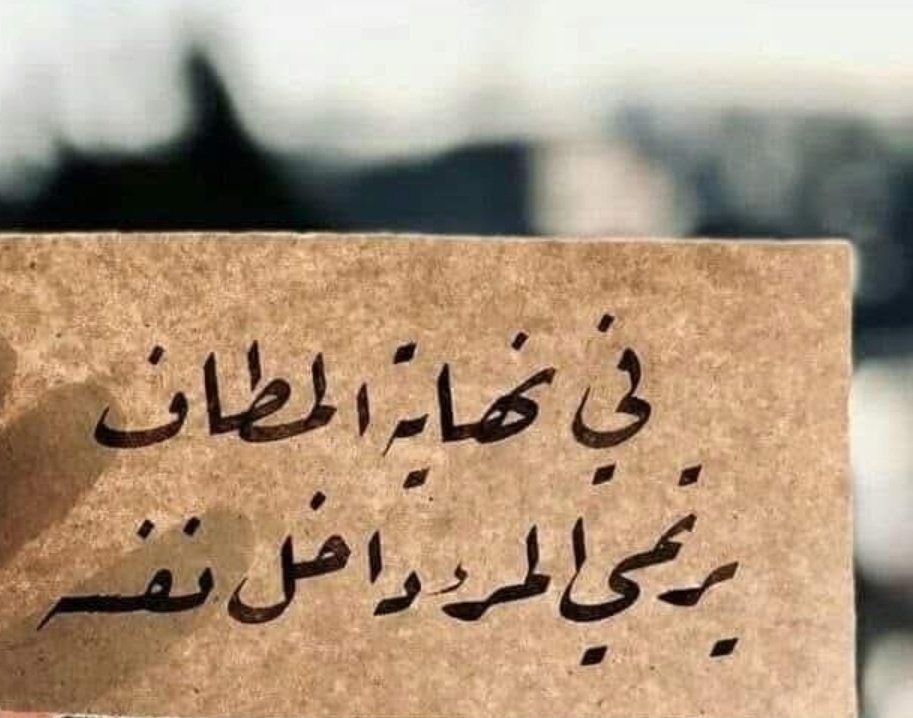 في نهاية المطاف
يرتمي المرء داخل نفسه